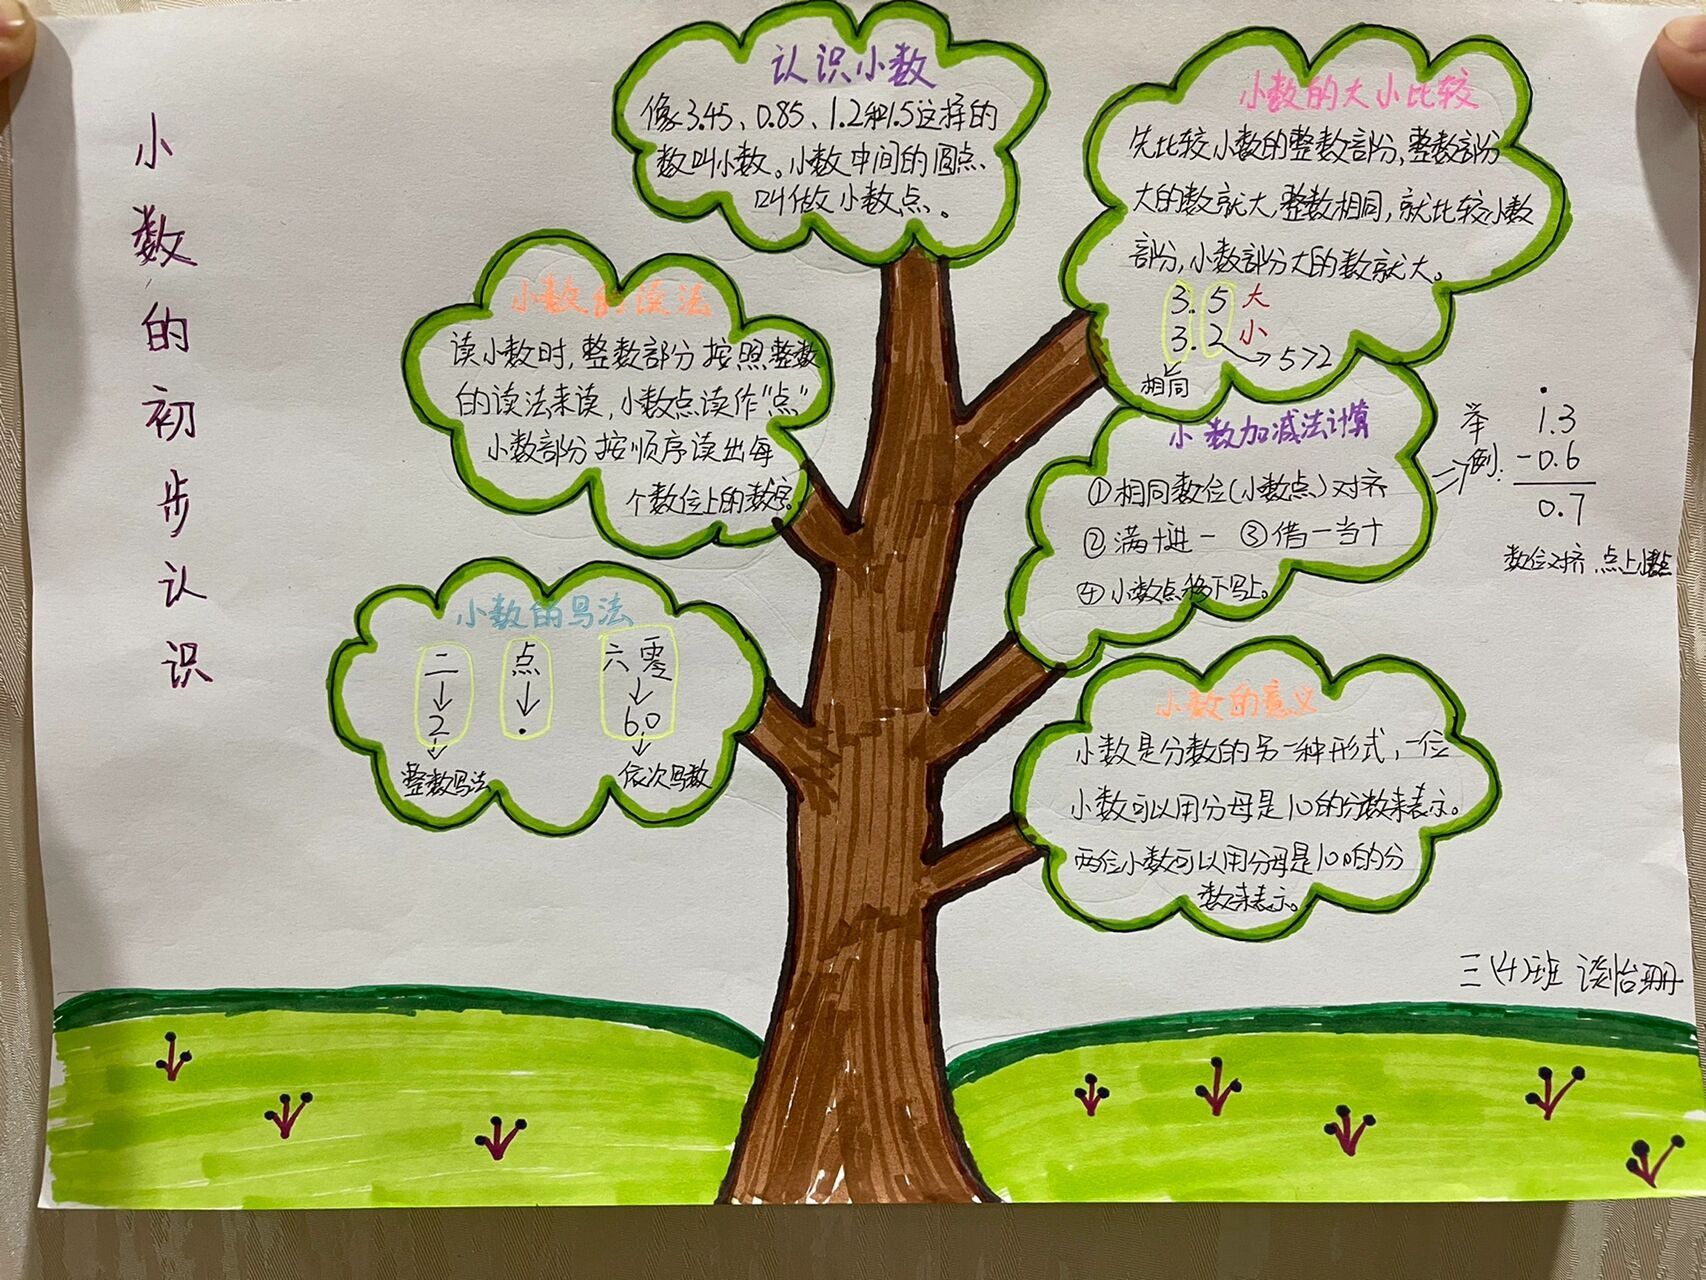 小数的初步认识
认识小数
像3.45、0.85、1.2和1.5这样的
数叫小数。小数中间的圆点
叫做小数点。
小数的读法
读小数时,整数部分按照整数
的读法来读,小数点读作“点”
小数部分按顺序读出每
个数位上的数字。
小数的写法
二 点 六零
↓ ↓ ↓
2 . 60
↓ ↓
整数写法 依次写数
小数的大小比较
先比较小数的整数部分,整数部分
大的数就大,整数相同,就比较小数
部分,小数部分大的数就大。
3.5 大
3.2 小
→5>2
相同
小数加减法计算
①相同数位(小数点)对齐
②满十进一 ③借一当十
④小数点移下写上。
举例:
1.3
-0.6
0.7
数位对齐、点上小数点
小数的意义
小数是分数的另一种形式,一位
小数可以用分母是10的分数来表示。
两位小数可以用分母是100的分
数来表示。
三(4)班 谈怡珊